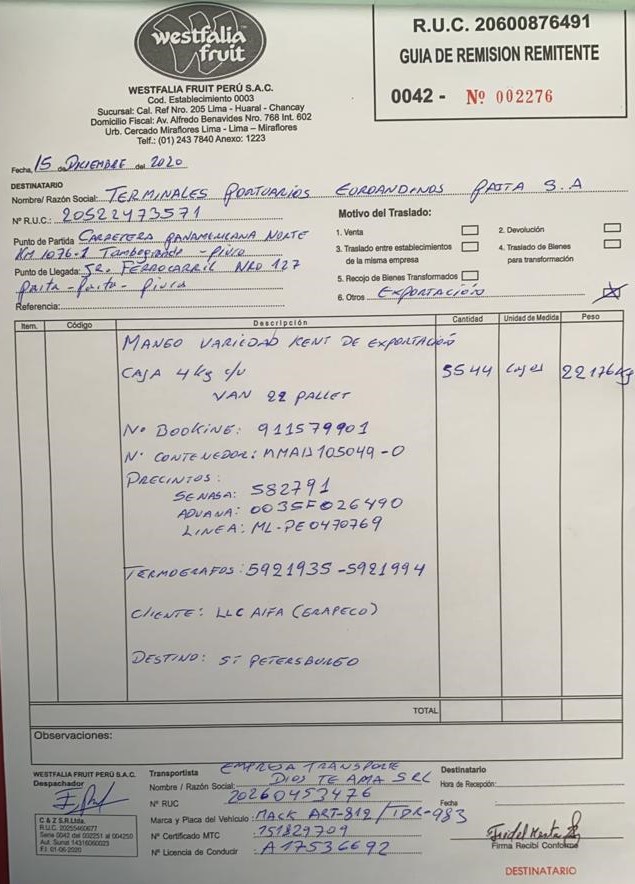 westfalia
fruit
WESTFALIA FRUIT PERÚ S.A.C.
Cod. Establecimiento 0003
Sucursal: Cal. Ref Nro. 205 Lima - Huaral - Chancay
Domicilio Fiscal: Av. Alfredo Benavides Nro. 768 Int. 602
Urb. Cercado Miraflores Lima - Lima – Miraflores
Telf.: (01) 243 7840 Anexo: 1223
R.U.C. 20600876491
GUIA DE REMISION REMITENTE
0042 - Nº 002276
Fecha, 15 de DICIEMBRE del 2020
DESTINATARIO
Nombre/ Razón Social: TERMINALES PORTUARIOS EUROANDINOS PAITA S.A
Nº R.U.C.: 20522473571
Punto de Partida CARRETERA PANAMERICANA NORTE
KM 1076-1 Tambogrande - Piura
Punto de Llegada: JR. FERROCARRIL NRO 127
Paita - Paita - Piura
Referencia:
Motivo del Traslado:
1. Venta
2. Devolución
3. Traslado entre establecimientos
de la misma empresa
4. Traslado de Bienes
para transformación
5. Recojo de Bienes Transformados
6. Otros EXPORTACIÓN
Item. Código Descripción Cantidad Unidad de Medida Peso
MANGO VARIEDAD KENT DE EXPORTACIÓ
CAJA 4 kg c/u 5544 cajas 22176 kg
VAN 22 PALLET
Nº BOOKING: 911579901
Nº CONTENEDOR: MMAU105049-0
PRECINTOS:
SENASA: 582791
ADUANA: 0035F026490
LINEA: ML-PE0470769
TERMOGRAFOS: 5921935 - 5921994
CLIENTE: LLC AIFA (GRAPECO)
DESTINO: ST PETERSBURGO
TOTAL
Observaciones:
WESTFALIA FRUIT PERÚ S.A.C.
Despachador
C & Z S.R.Ltda.
R.U.C. 20255460677
Serie 0042 del 002251 al 004250
Aut. Sunat 14316060023
F.I. 01-06-2020
Transportista EMPRESA TRANSPORTE
Nombre / Razón Social: DIOS TE AMA SRL
Nº RUC 20260453476
Marca y Placa del Vehículo: MACK ART-812 / TDR-983
Nº Certificado MTC 151829709
Nº Licencia de Conducir: A17536692
Destinatario
Hora de Recepción:
Fecha
Firma Recibí Conforme
DESTINATARIO